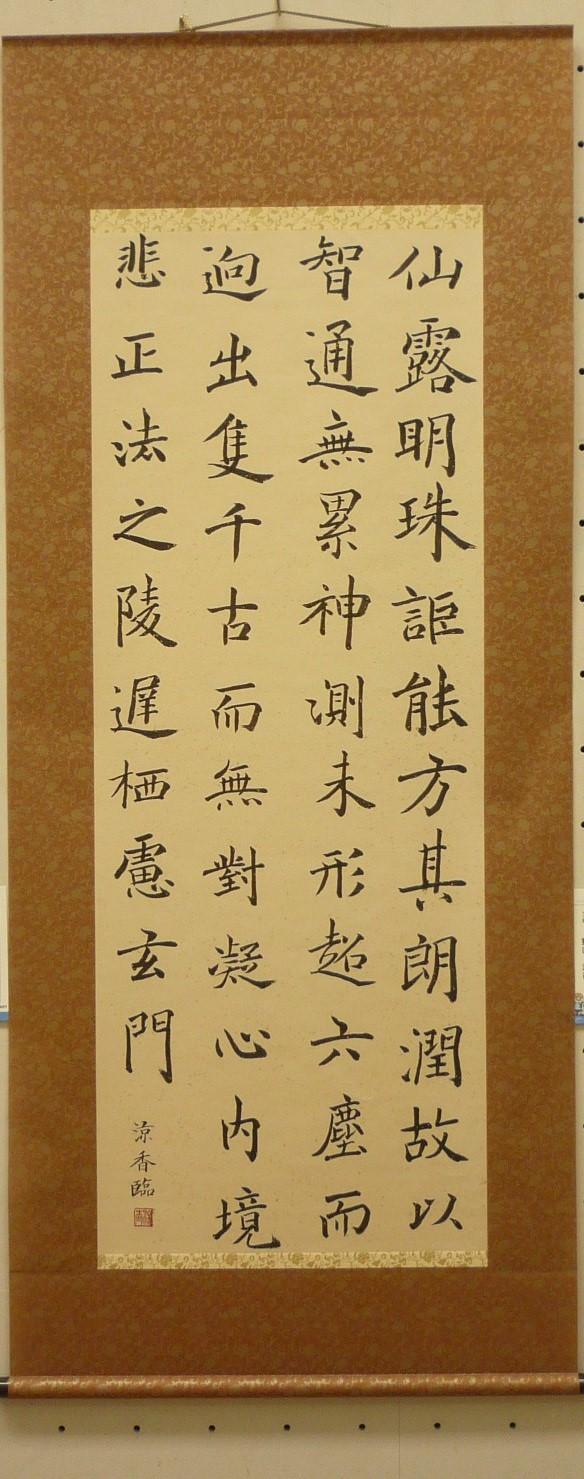 仙露明珠詎能方其朗潤故以
智通無累神測未形超六塵而
迥出隻千古而無對凝心内境
悲正法之陵遲栖慮玄門
涼香臨